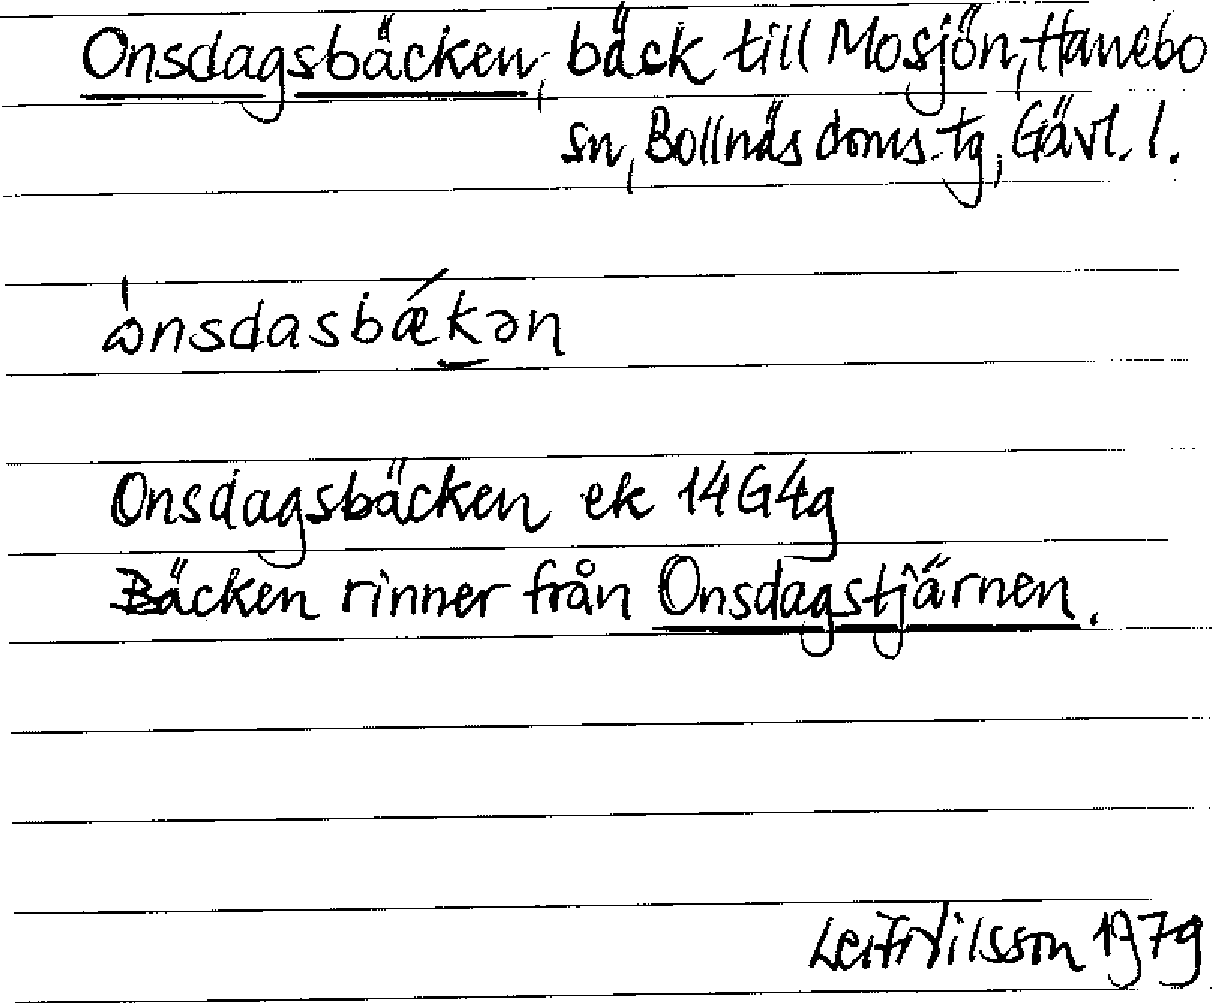 Onsdagsbäcken, bäck till Mosjön, Hanebo
sn, Bollnäs doms. tg, Gävl. l.
ònsdasbǽkən
Onsdagsbäcken ek 14G4g
Bäcken rinner från Onsdagstjärnen.
Leif Nilsson 1979